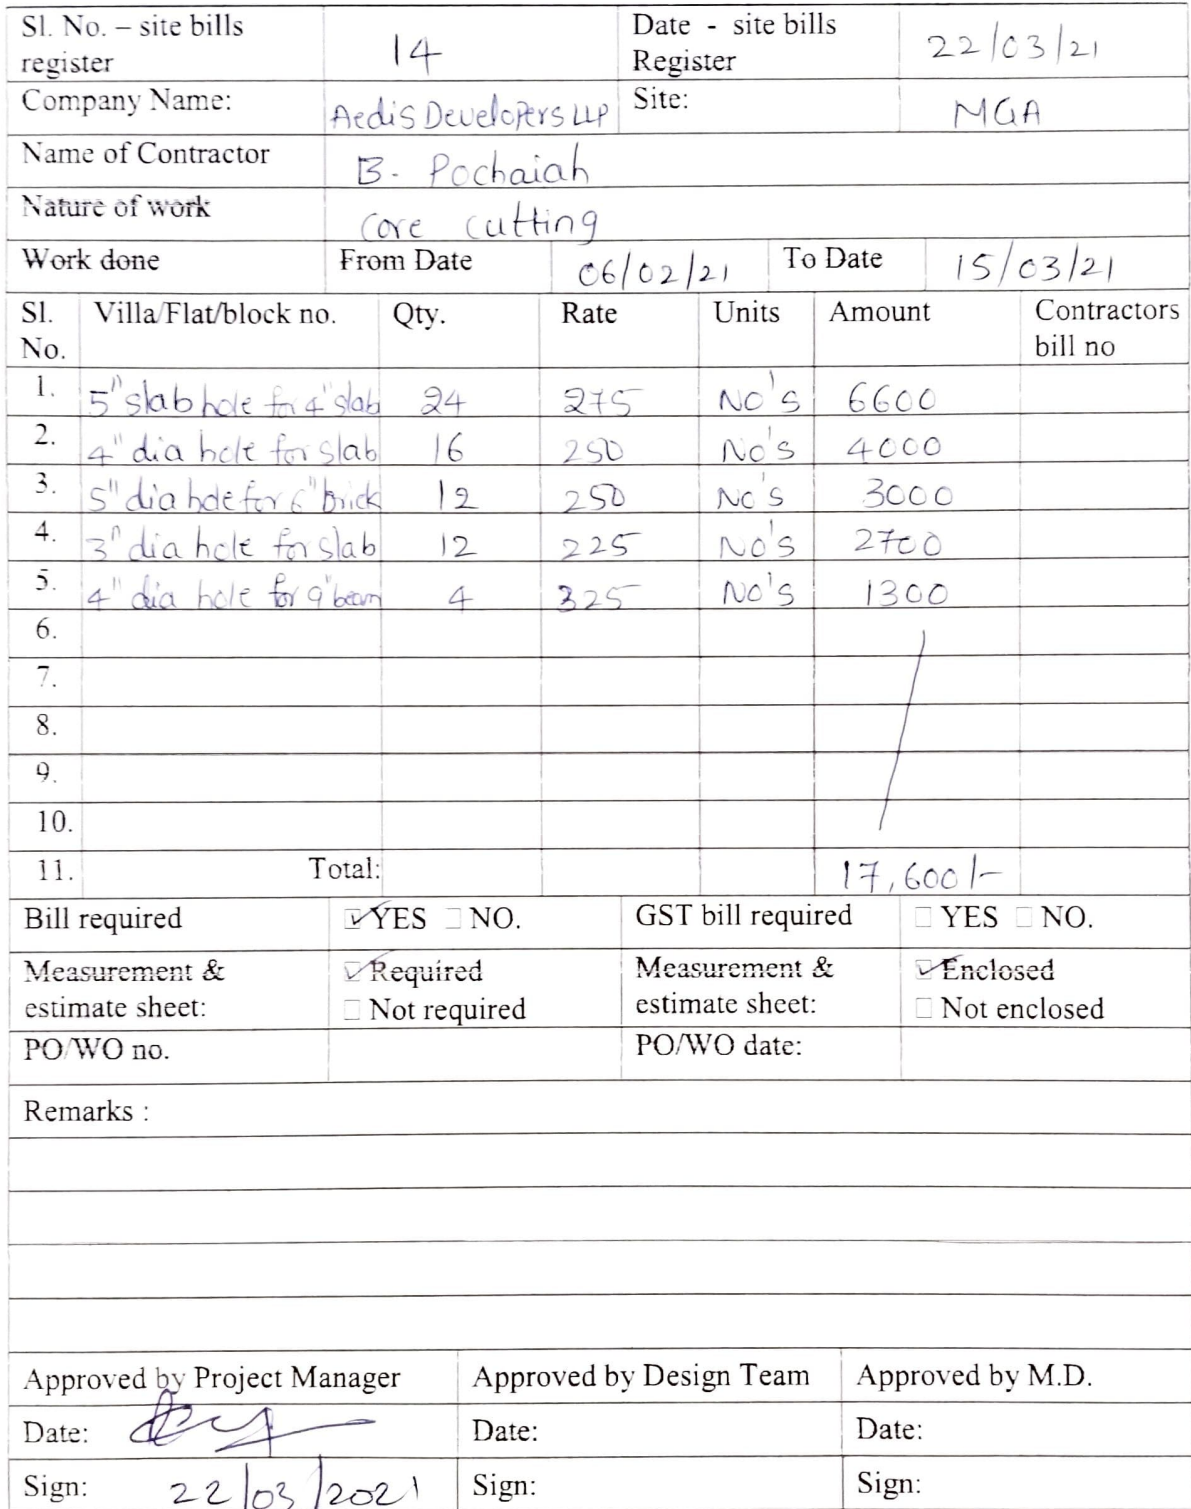 Sl. No. – site bills register 14 Date - site bills Register 22/03/21
Company Name: Aedis Developers LLP Site: MGA
Name of Contractor B. Pochaiah
Nature of work core cutting
Work done From Date 06/02/21 To Date 15/03/21
Sl. No. Villa/Flat/block no. Qty. Rate Units Amount Contractors bill no
1. 5" slab hole for 4" slab 24 275 No's 6600
2. 4" dia hole for slab 16 250 No's 4000
3. 5" dia hole for 6" brick 12 250 No's 3000
4. 3" dia hole for slab 12 225 No's 2700
5. 4" dia hole for 9" beam 4 325 No's 1300
6.
7.
8.
9.
10.
11. Total: 17,600/-
Bill required ☑YES ☐NO. GST bill required ☐ YES ☐ NO.
Measurement & estimate sheet: ☑Required ☐ Not required Measurement & estimate sheet: ☑Enclosed ☐ Not enclosed
PO/WO no. PO/WO date:
Remarks :
Approved by Project Manager Approved by Design Team Approved by M.D.
Date: Date: Date:
Sign: 22/03/2021 Sign: Sign: